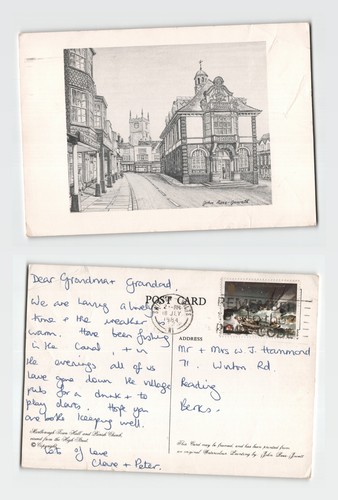 Dear Grandma + Grandad,
We are having a lovely
time & the weather is
warm. Have been fishing
in the Canal, & in
the evenings all of us
have gone down the village
pubs for a drink & to
play darts. Hope you
are both keeping well.
Lots of love
Clare & Peter.
Marlborough Town Hall and Parish Church,
viewed from the High Street
© Copyright
POST CARD
ADDRESS
Mr + Mrs W J Hammond
71. Road
Reading
Berks.
JULY
1984
REMEMBER
POSTCODE
This Card may be framed, and has been printed from
an original Watercolour Painting by John Ross